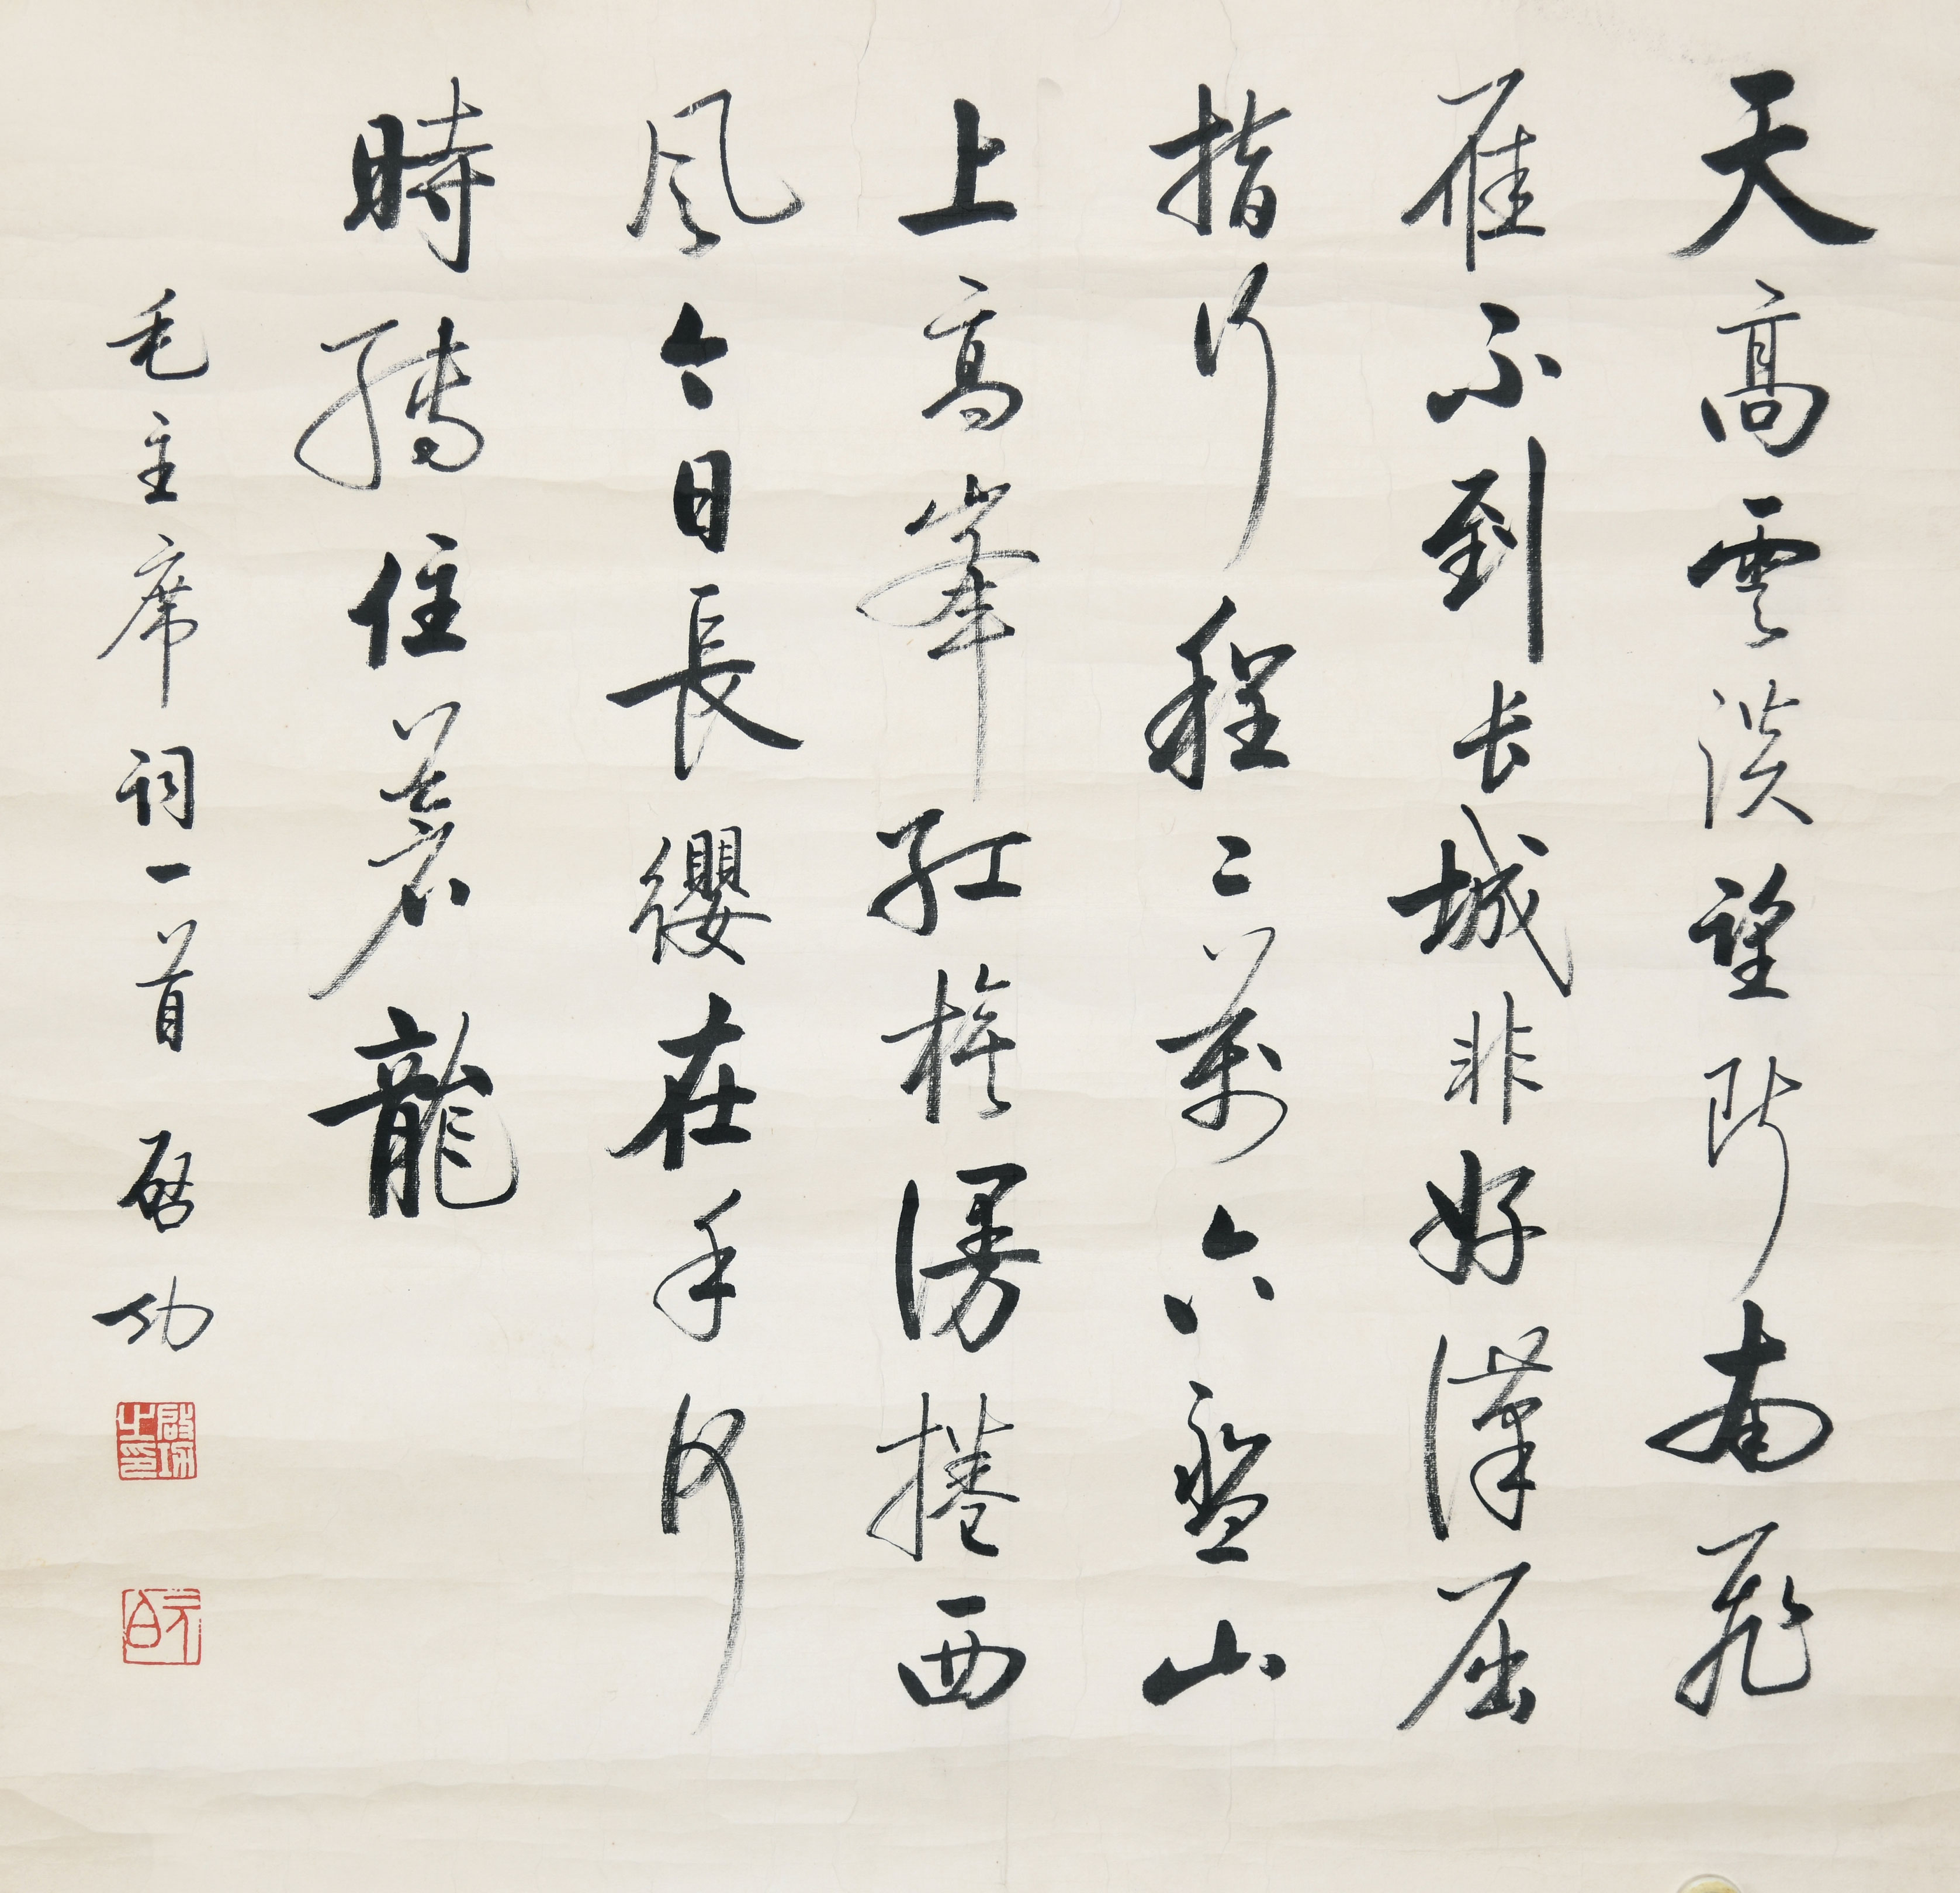 天高雲淡望斷南飛
雁不到长城非好漢屈
指行程二萬六盤山
上高峯紅旗漫捲西
風今日長纓在手何
時縛住蒼龍
毛主席詞一首 啓功
啟功之印
元白